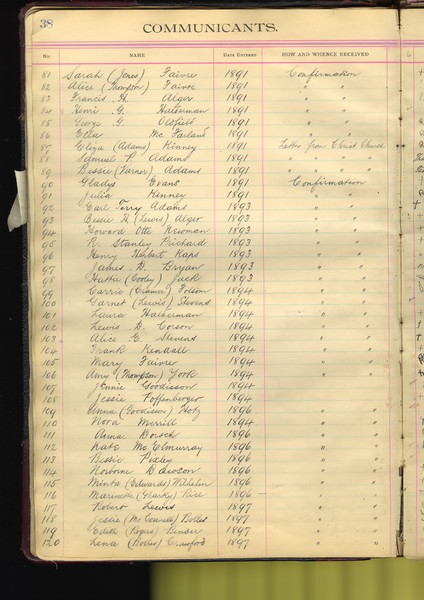 38
COMMUNICANTS.
No. NAME DATE ENTERED HOW AND WHENCE RECEIVED
81 Sarah (Jones) Faivre 1891 Confirmation
82 Alice (Thompson) Faivre 1891 " "
83 Francis H. Alger 1891 " "
84 G. Halderman 1891 " "
85 George G. Oldfield 1891 " "
86 Ella McFarland 1891 " "
87 Eliza (Adams) Kinney 1891 Letter from Christ Church
88 Samuel P. Adams 1891 " " " "
89 Bessie (Varner) Adams 1891 " " " "
90 Gladys Evans 1891 Confirmation
91 Julia Kinney 1891 " "
92 Carl Terry Adams 1893 " "
93 Bessie H (Lewis) Alger 1893 " "
94 Howard Otto Newman 1893 " "
95 R. Stanley Prichard 1893 " "
96 Henry Herbert Kaps 1893 " "
97 James D. Bryan 1893 " "
98 Hattie (Cooley) Jack 1893 " "
99 Carrie (Cramer) Folsom 1894 " "
100 Garnet (Lewis) Stevens 1894 " "
101 Laura Halderman 1894 " "
102 Lewis D. Corson 1894 " "
103 Alice E. Stevens 1894 " "
104 Frank Kendall 1894 " "
105 Mary Faivre 1894 " "
106 Amy (Thompson) York 1894 " "
107 Jennie Goodisson 1894
108 Jessie Poffenberger 1894
109 Anna (Goodisson) Hotz 1896 " "
110 Nora Merrill 1894 " "
111 Anna Borsch 1896 " "
112 Kate McElmurray 1896 " "
113 Bessie Pixley 1896 " "
114 Dawson 1896 " "
115 Minta (Edwards) Wilhelm 1896 " "
116 (Sharkey) Rice 1896 " "
117 Robert Lewis 1897 " "
118 Jessie (McConnell) Bolles 1897 " "
119 Edith (Rogers) Bender 1897 " "
120 Lena (Bodie) Crawford 1897 " "